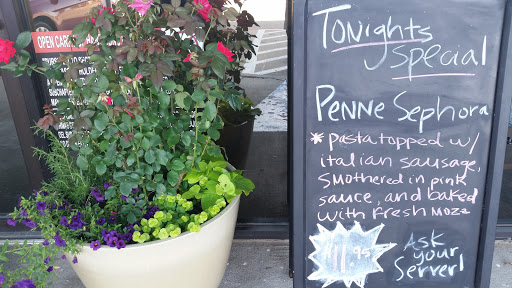 OPEN CAR
Tonights
Special
Penne Sephora
* pasta topped w/
italian sausage,
smothered in pink
sauce, and baked
with fresh mozz
11.95
Ask
your
Server!